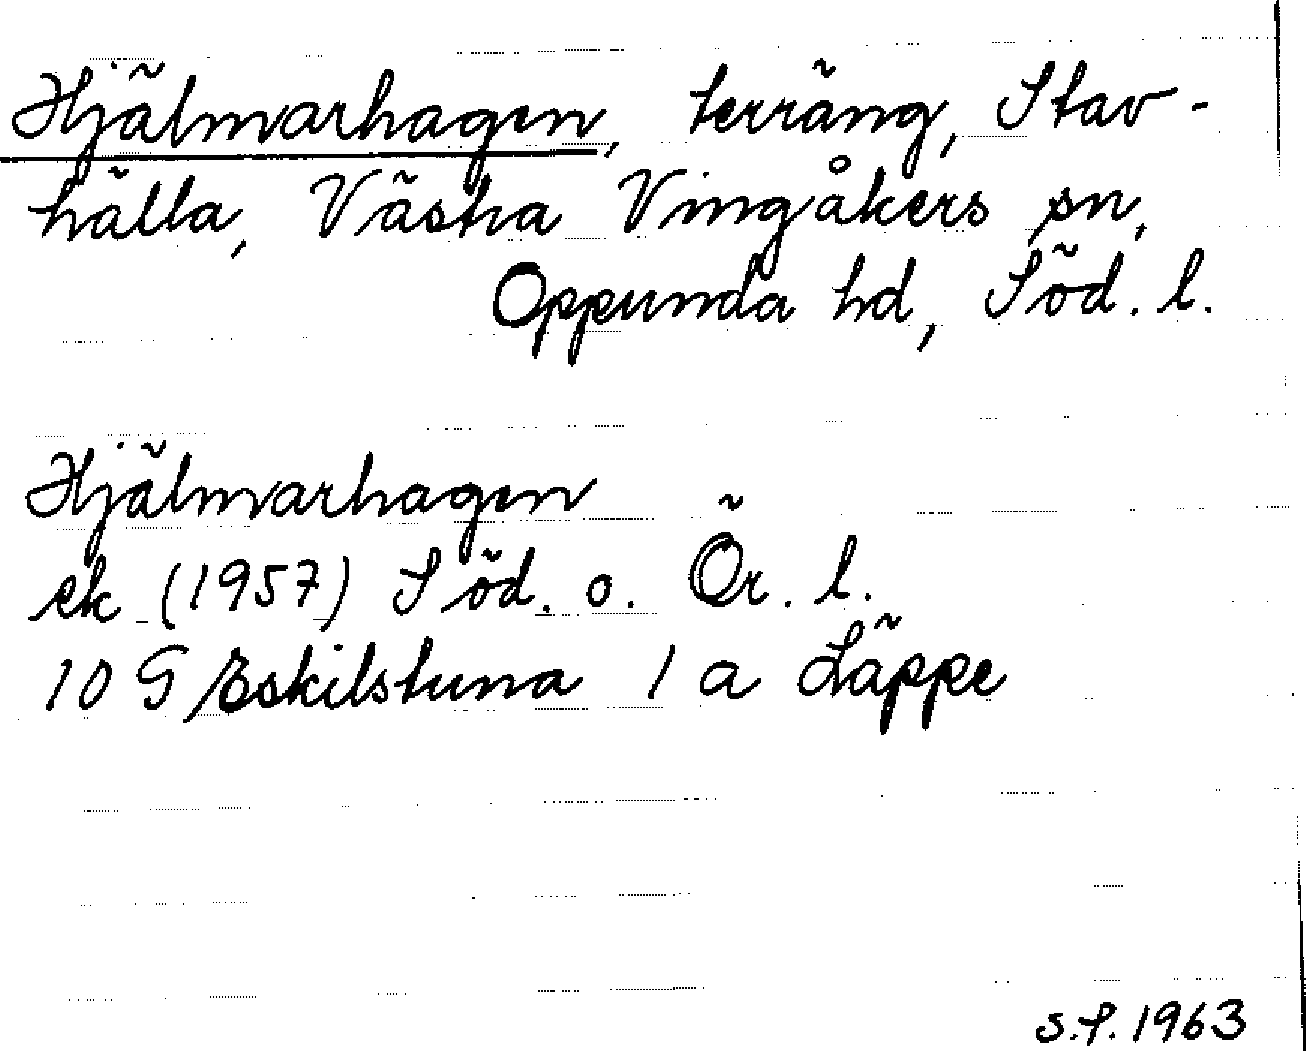 Hjälmarhagen, terräng, Stav-
hälla, Västra Vingåkers sn,
Oppunda hd, Söd. l.
Hjälmarhagen
ek (1957) Söd. o. Ör. l.
10 G Eskilstuna 1 a Läppe
S.P. 1963